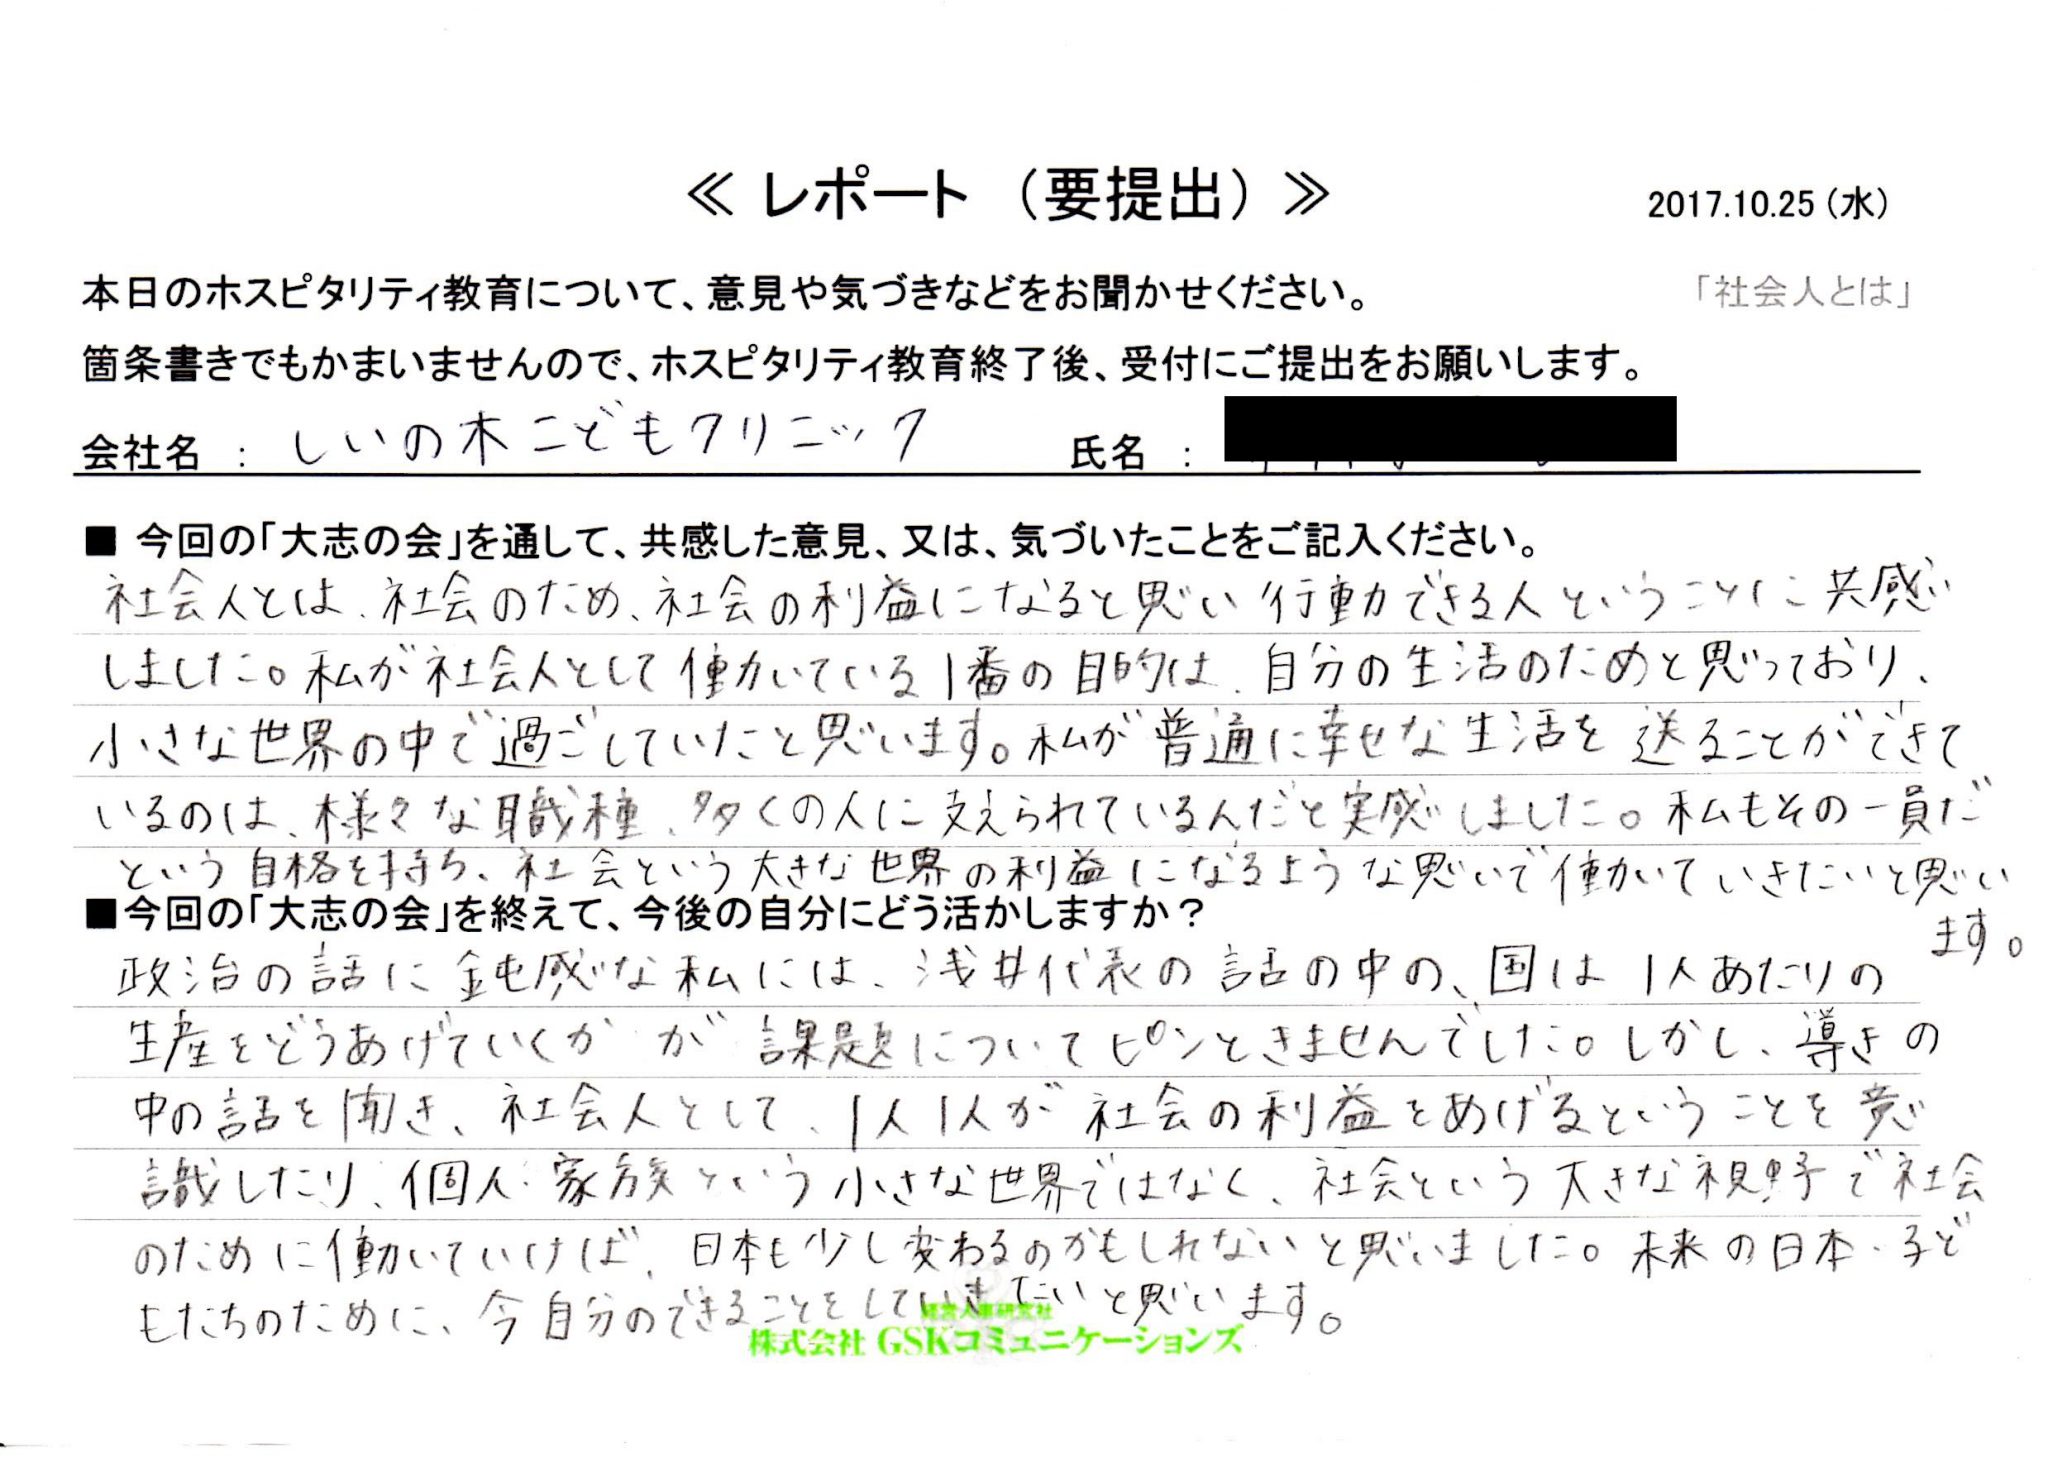 ≪ レポート （要提出） ≫
2017.10.25 (水)
本日のホスピタリティ教育について、意見や気づきなどをお聞かせください。
「社会人とは」
箇条書きでもかまいませんので、ホスピタリティ教育終了後、受付にご提出をお願いします。
会社名 : しいの木こどもクリニック 氏名 :
■ 今回の「大志の会」を通して、共感した意見、又は、気づいたことをご記入ください。
社会人とは、社会のため、社会の利益になると思い行動できる人ということに共感
しました。私が社会人として働いている1番の目的は、自分の生活のためと思っており、
小さな世界の中で過ごしていたと思います。私が普通に幸せな生活を送ることができて
いるのは、様々な職種、多くの人に支えられているんだと実感しました。私もその一員だ
という自格を持ち、社会という大きな世界の利益になるような思いで働いていきたいと思い
ます。
■今回の「大志の会」を終えて、今後の自分にどう活かしますか？
政治の話に鈍感な私には、浅井代表の話の中の、国は1人あたりの
生産をどうあげていくかが課題についてピンときませんでした。しかし、導きの
中の話を聞き、社会人として、1人1人が社会の利益をあげるということを意
識したり、個人・家族という小さな世界ではなく、社会という大きな視野で社会
のために働いていけば、日本も少し変わるのかもしれないと思いました。未来の日本・子ど
もたちのために、今自分のできることをしていきたいと思います。
経営人事研究社
株式会社 GSKコミュニケーションズ